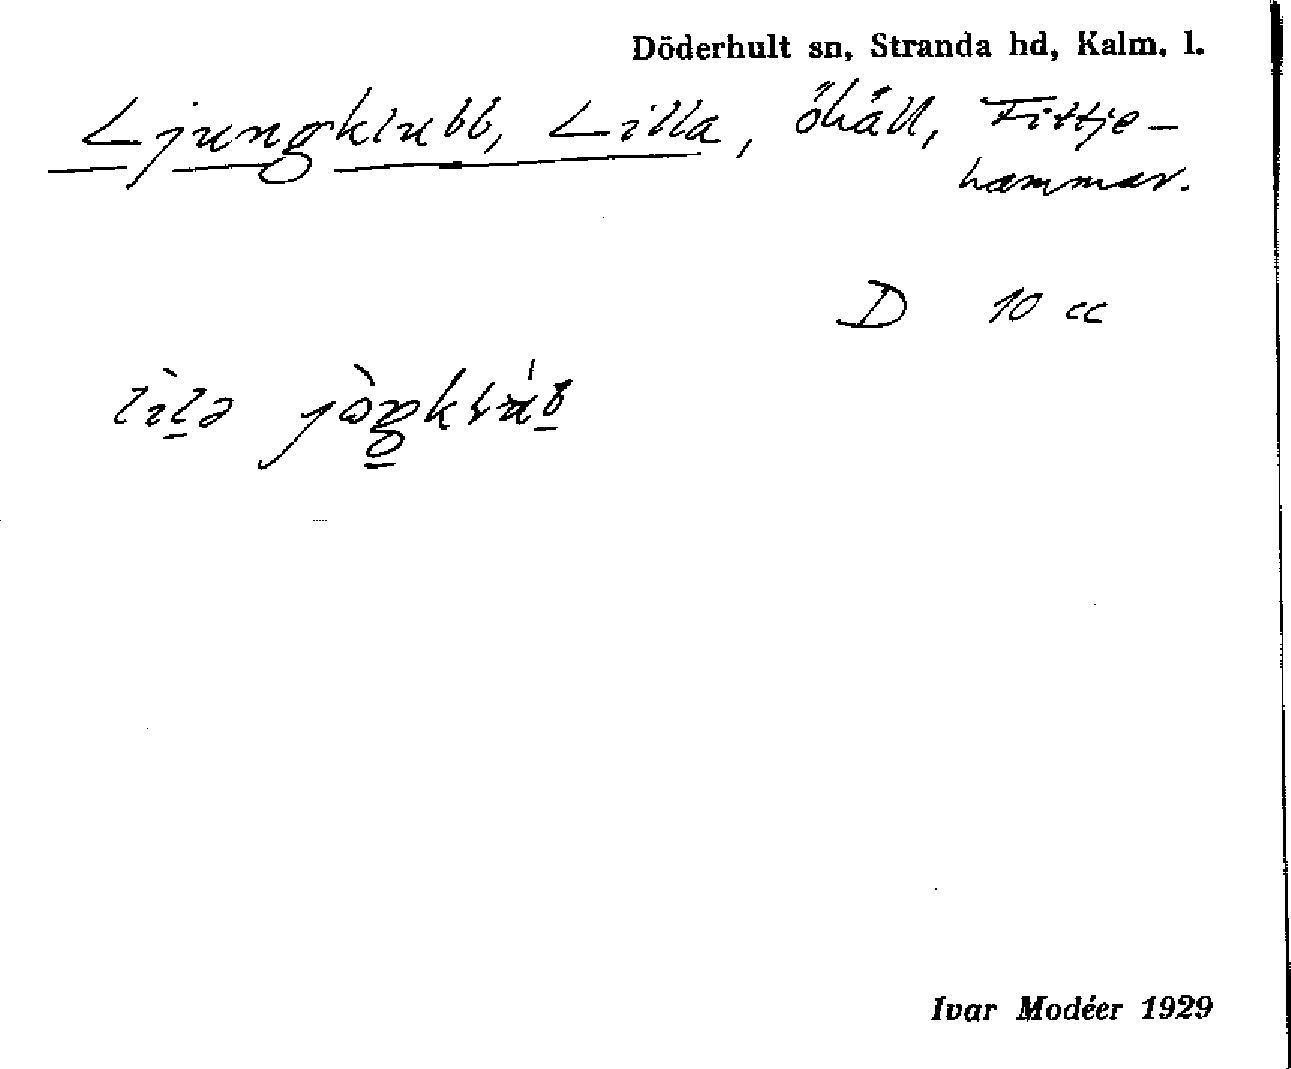 Döderhult sn, Stranda hd, Kalm. l.
Ljungklubb, Lilla, öhäll, Fittje-
hammar.
D 10 cc
Ivar Modéer 1929